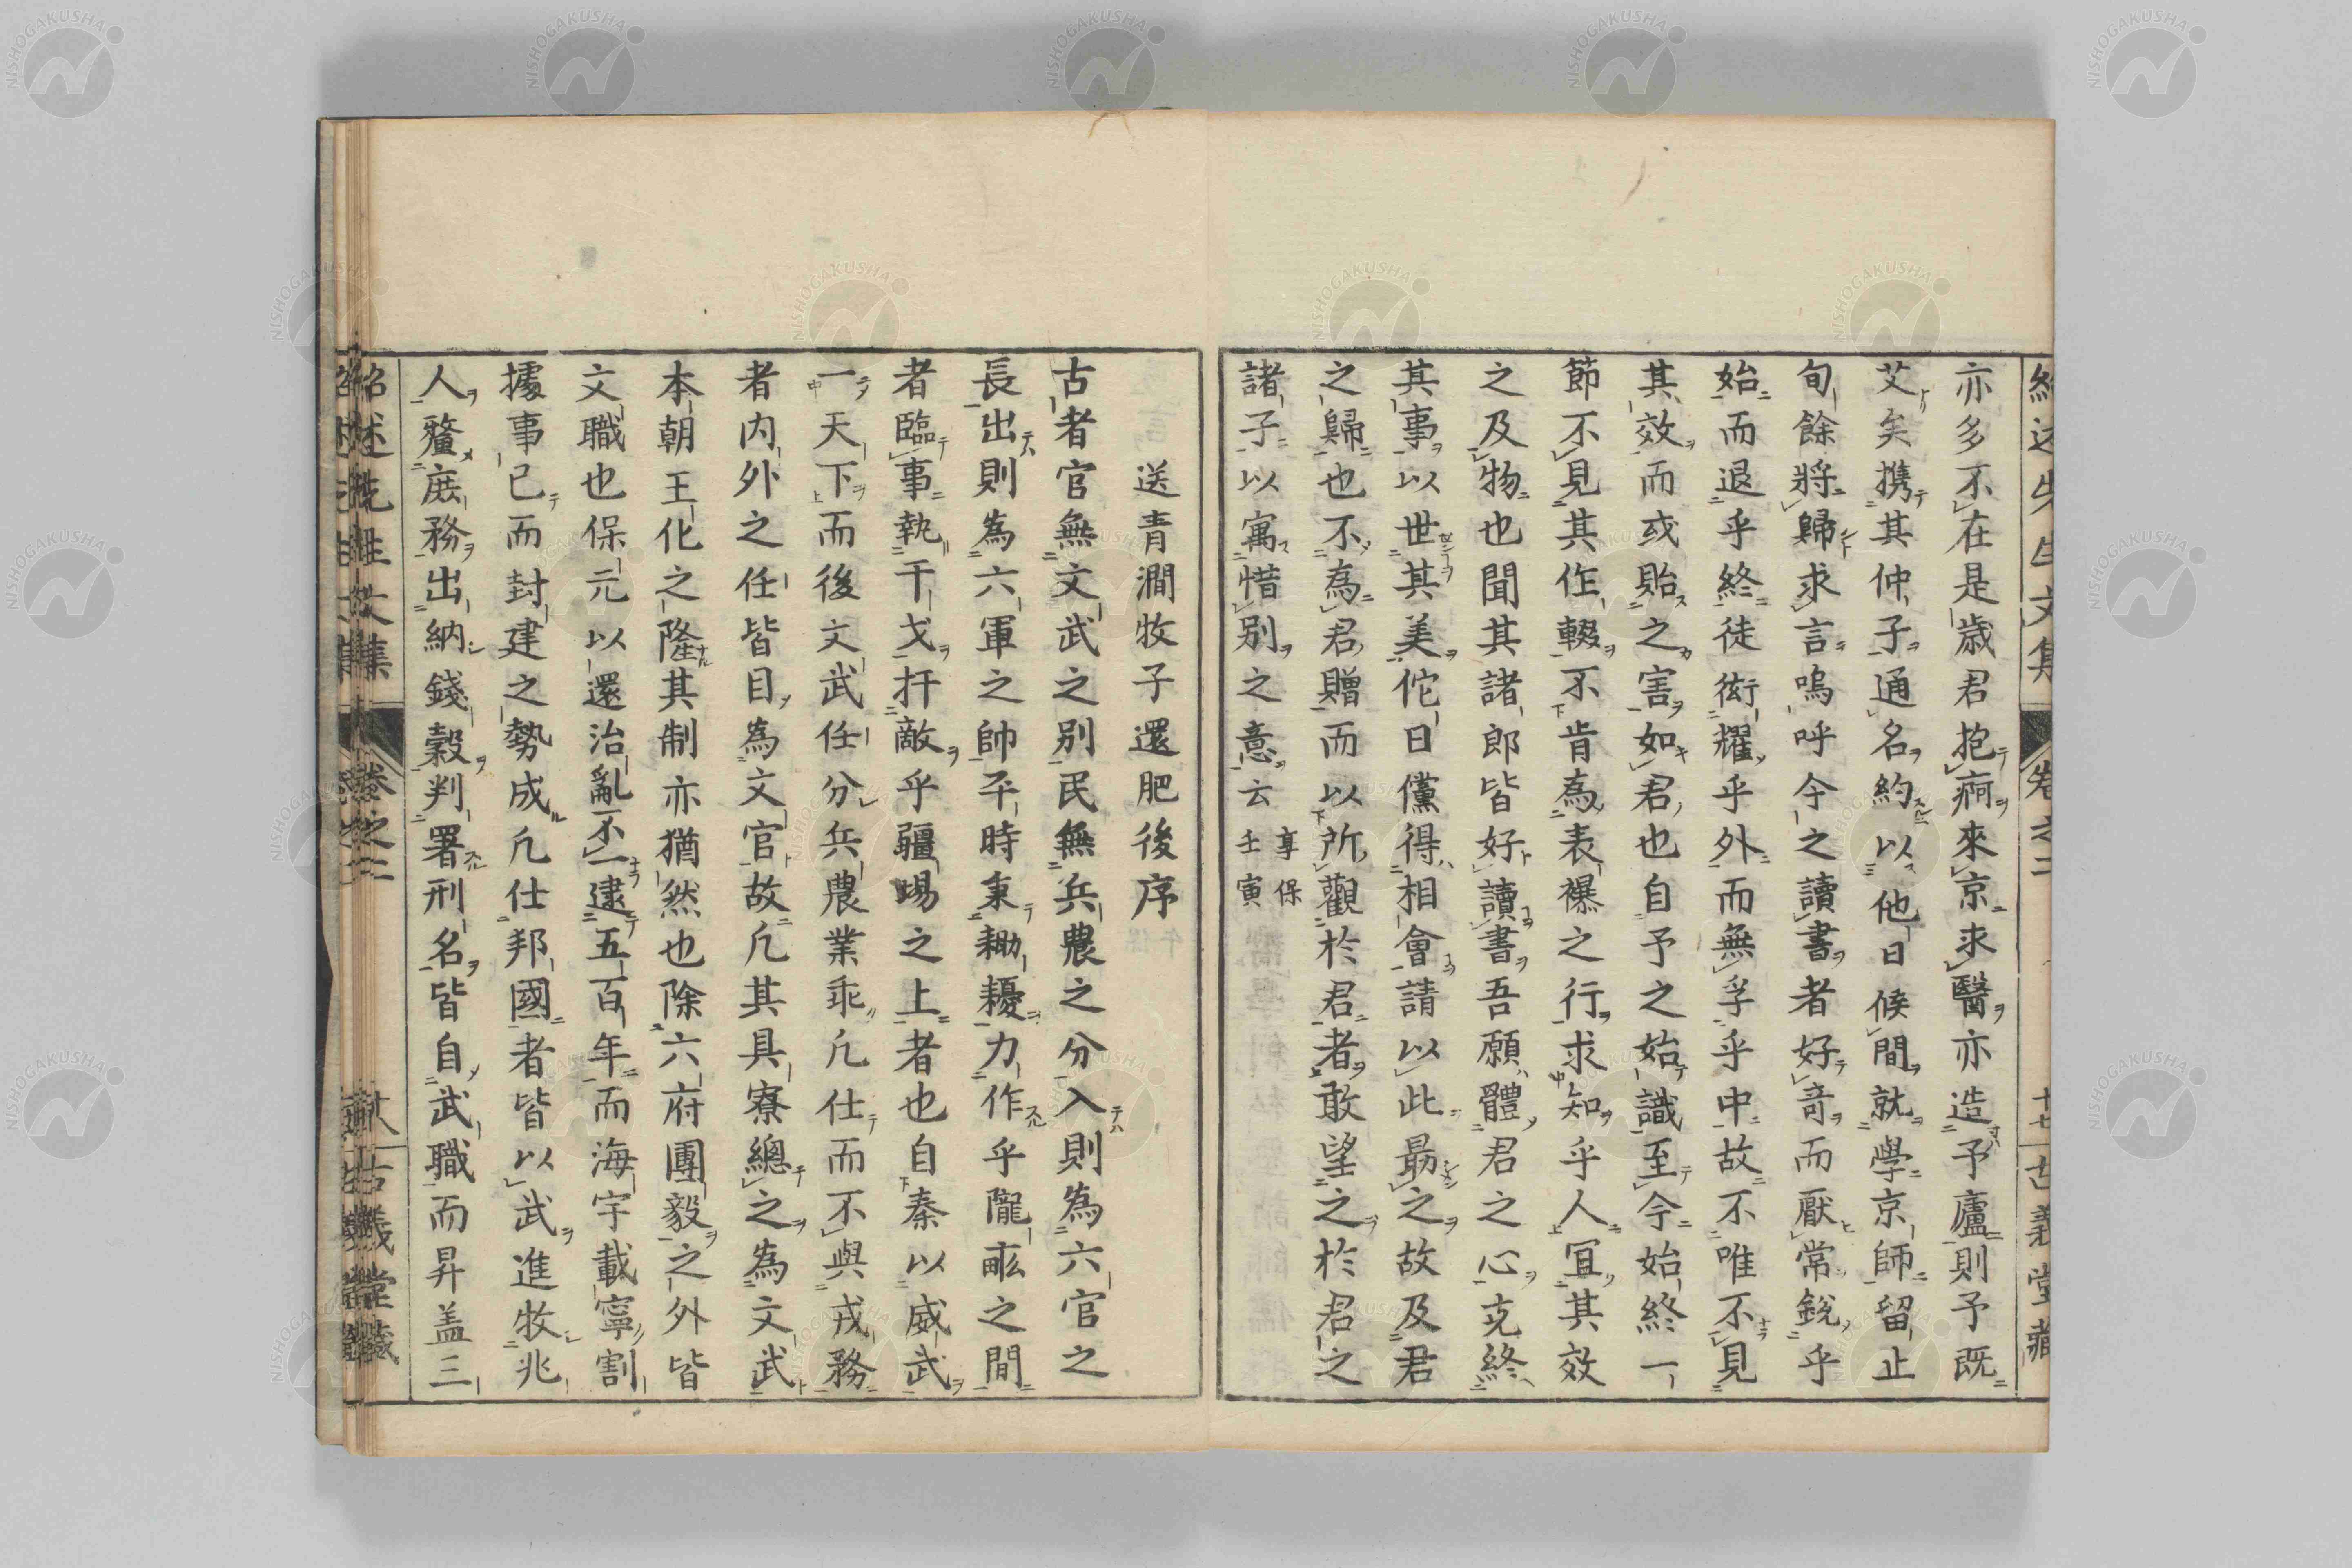 亦多不在是歳君抱痾來京求醫亦造予廬則予既
艾矣携其仲子通名約以他日候間就學京師留止
旬餘將歸求言嗚呼今之讀書者好竒而厭常銳乎
始而退乎終徒衒耀乎外而無孚乎中故不唯不見
其效而或貽之害如君也自予之始識至今始終一
節不見其作輟不肯為表襮之行求知乎人宜其效
之及物也聞其諸郎皆好讀書吾願體君之心克終
其事以世其美佗日儻得相會請以此最之故及君
之歸也不為君贈而以所觀於君者敢望之於君之
諸子以寓惜別之意云 享保壬寅
送青澗牧子還肥後序
古者官無文武之別民無兵農之分入則為六官之
長出則為六軍之帥平時秉耡耰力作乎隴畝之間
者臨事執干戈扞敵乎疆埸之上者也自秦以威武
一天下而後文武任分兵農業乖凢仕而不與戎務
者内外之任皆目為文官故凢其具寮總之為文武
本朝王化之隆其制亦猶然也除六府團毅之外皆
文職也保元以還治亂不一逮五百年而海宇載寧割
據事已而封建之勢成凢仕邦國者皆以武進牧兆
人釐庶務出納錢穀判署刑名皆自武職而昇盖三
紹述先生文集 卷之二 十七 古義堂藏
NISHOGAKUSHA